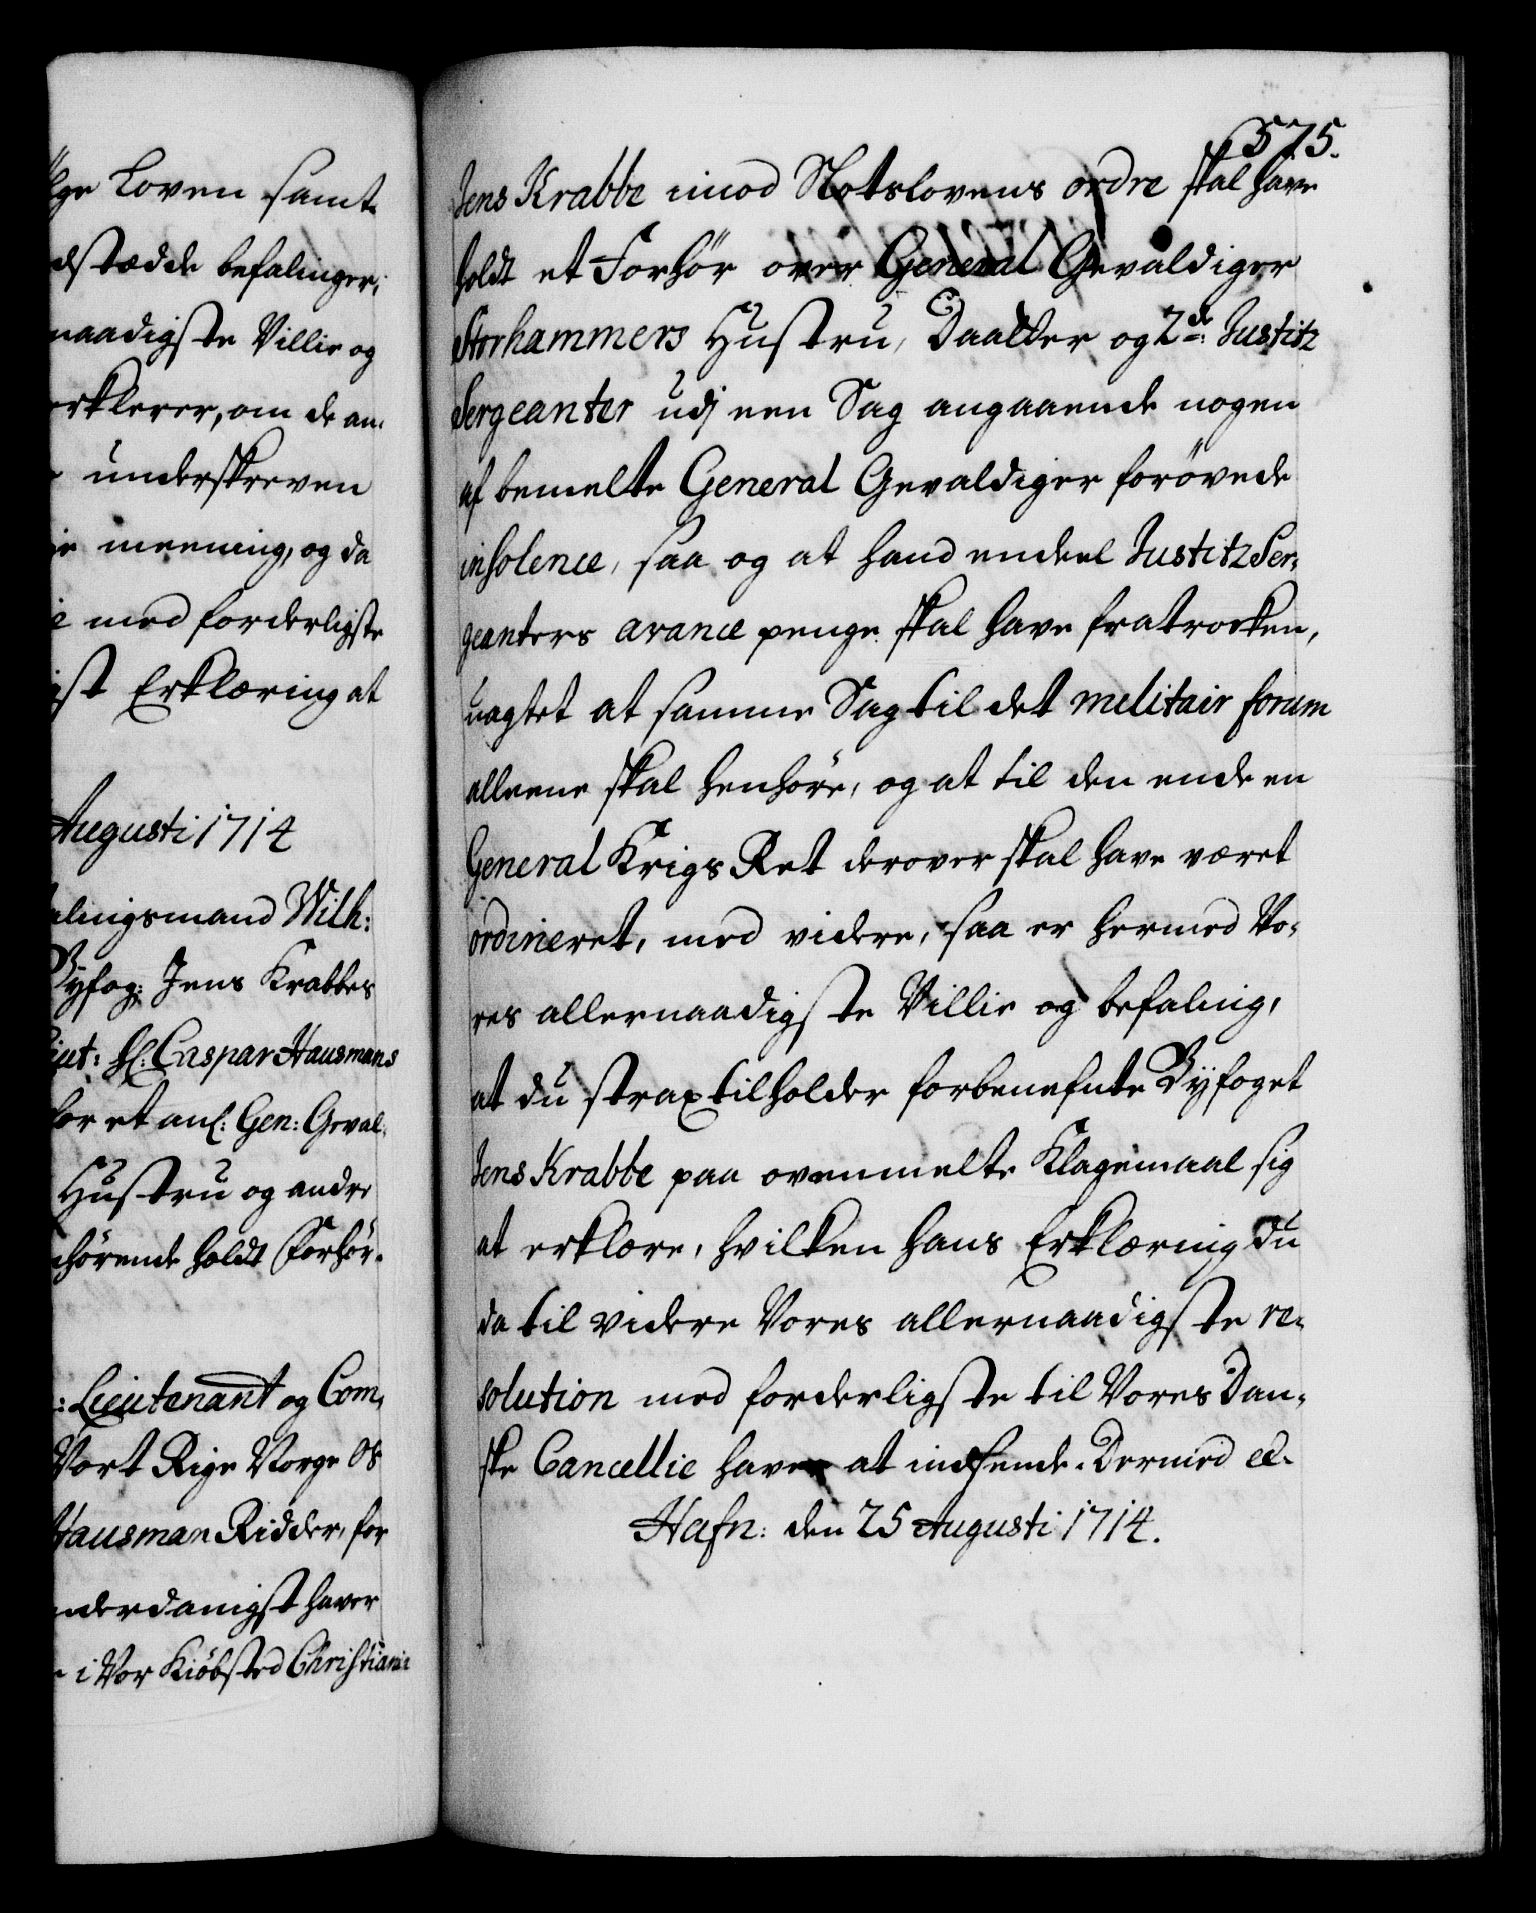 lge Loven samt
dstædde befalinger,
naadigste Villie og
erklerer, om de an-
underskreven
meening, og da
med forderligste
gst Erklæring at
Augusti 1714
alingsmand Wilh:
Byfog: Jens Krabbes
Lieut: Hl: Caspar Hausmans
for et anl: Gen: Geval-
Hustru og andre
hörende holdt Forhör.
: Lieutenant og Com-
Vort Rige Norge Os
Hausman Ridder, for
nderdanigst haver
i Vor Kiöbsted Christiania
575.
Jens Krabbe imod Slotslovens ordre skal have
holdt et Forhör over General Gevaldiger
Storhammers Hustru, Daatter og 2de Justitz
Sergeanter udj een Sag angaaende nogen
af bemelte General Gevaldiger forövede
insolence, saa og at hand endeel Justitz Ser-
geanters avance penge skal have fratrocken,
uagtet at samme Sag til det melitair forum
alleene skal henhöre, og at til den ende en
General Krigs Ret derover skal have været
ordineret, med videre, saa er hermed Vo-
res allernaadigste Villie og befaling,
at du strax tilholder forbenefnte Byfoget
Jens Krabbe paa ovenmelte Klagemaal sig
at erklære, hvilken hans Erklæring du
da til videre Vores allernaadigste re-
solution med forderligste til Vores Dan-
ske Cancellie haver at indsende. Dermed etc.
Hafn: den 25 Augusti 1714.